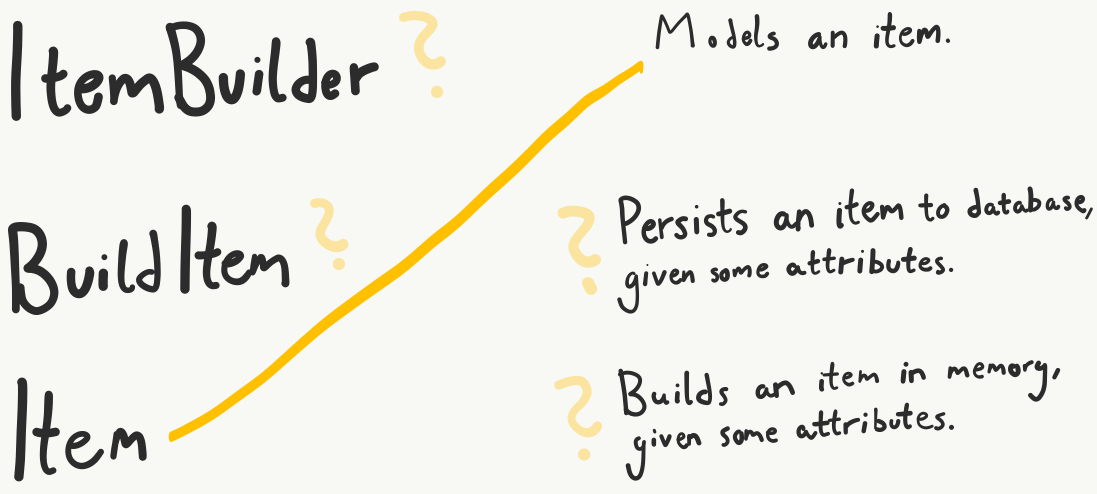 ItemBuilder ?
Models an item.
BuildItem ?
? Persists an item to database,
given some attributes.
Item
? Builds an item in memory,
given some attributes.